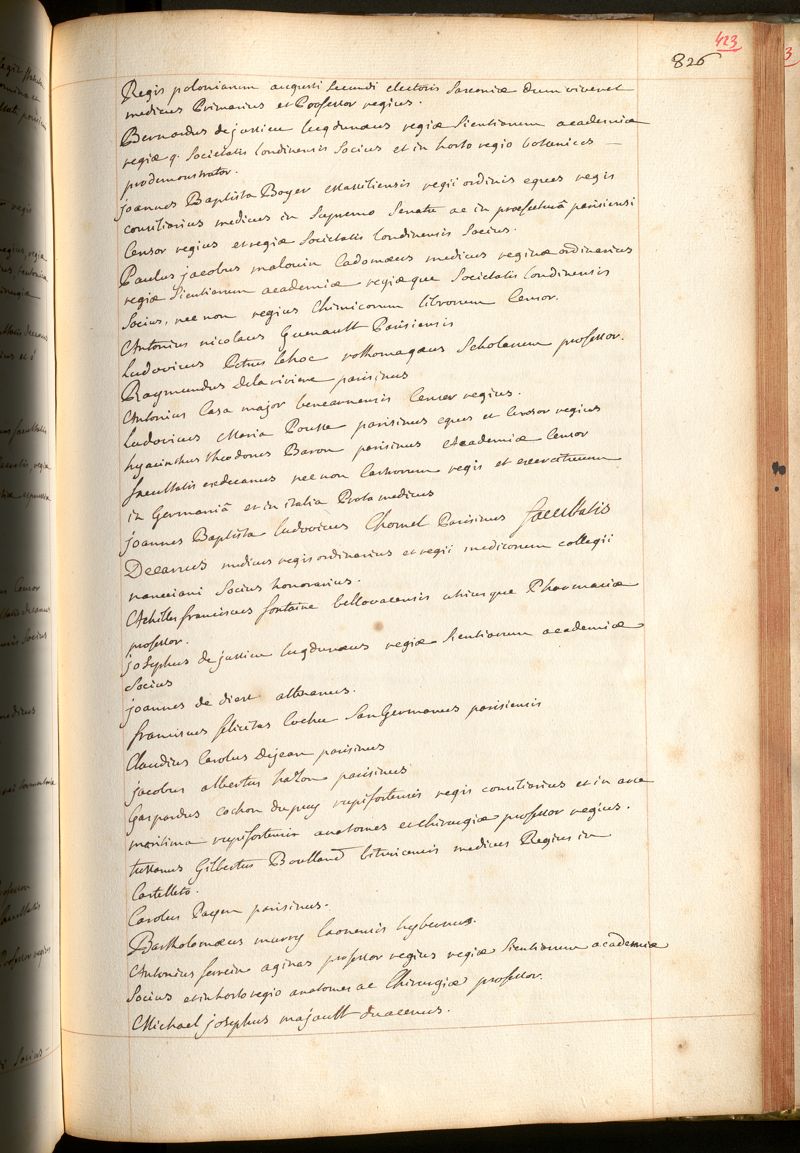 423
826
Regis polonianum augusti secundi electoris Saxoniæ dum viveret
medicus Primarius et Professor regius.
Bernardus dejussieu lugdunæus regiæ Sientiarum academiæ
regiæ q. Societatis londinensis Socius et in horto regio botanices
prodemonstrator.
joannes Baptista Boyer Massiliensis regii ordinis eques regis
consiliarius medicus in Supremo Senatu ac in præfecturâ parisiensi
Censor regius et regiæ Societatis londinensis Socius.
Paulus jacobus malouin Cadomæus medicus reginæ ordinarius
regiæ Sientiarum academiæ regiæque Societatis Londinensis
Socius, nec non regius Chimicorum librorum Censor.
Antonius nicolaus Guenault Parisiensis
Ludovicus Petrus lehoc rothomagæus Scholarum professor.
Raymundus delariviere parisinus
Antonius Casa major benearnensis Censor regius.
Ludovicus Maria Pousse parisinus eques et Censor regius
hyacinthus theodorus Baron parisinus Academiæ Censor
facultatis exdecanus nec non Castrorum regis et exercituum
in Germaniâ et in italia Proto medicus
joannes Baptista ludovicus Chomel Parisinus facultatis
Decanus medicus regis ordinarius et regii medicorum collegii
nanceiani Socius honorarius.
Achilles franciscus fontaine bellovacensis utriusque Pharmaciæ
professor.
josephus de jussieu lugdunæus regiæ Sientiarum academiæ
Socius
joannes de diest
franciscus felicitas Cochu SanGermanus parisiensis
Claudius Carolus Dejean parisinus
jacobus albertus hazon parisinus
Gaspardus cochon dupuy rupifortensis regis consiliarius et in arce
maritima rupifortensi anatomes et chirurgiæ professor regius.
tussanus Gilbertus Boulland bituricensis medicus Regius in
Castelleto.
Carolus Payen parisinus.
Bartholomæus murry laonensis hybernus.
Antonius ferrein aginas professor regius regiæ Sientiarum academiæ
Socius et in horto regio anatomes ac Chirurgiæ professor.
Michael josephus majault duacenus.